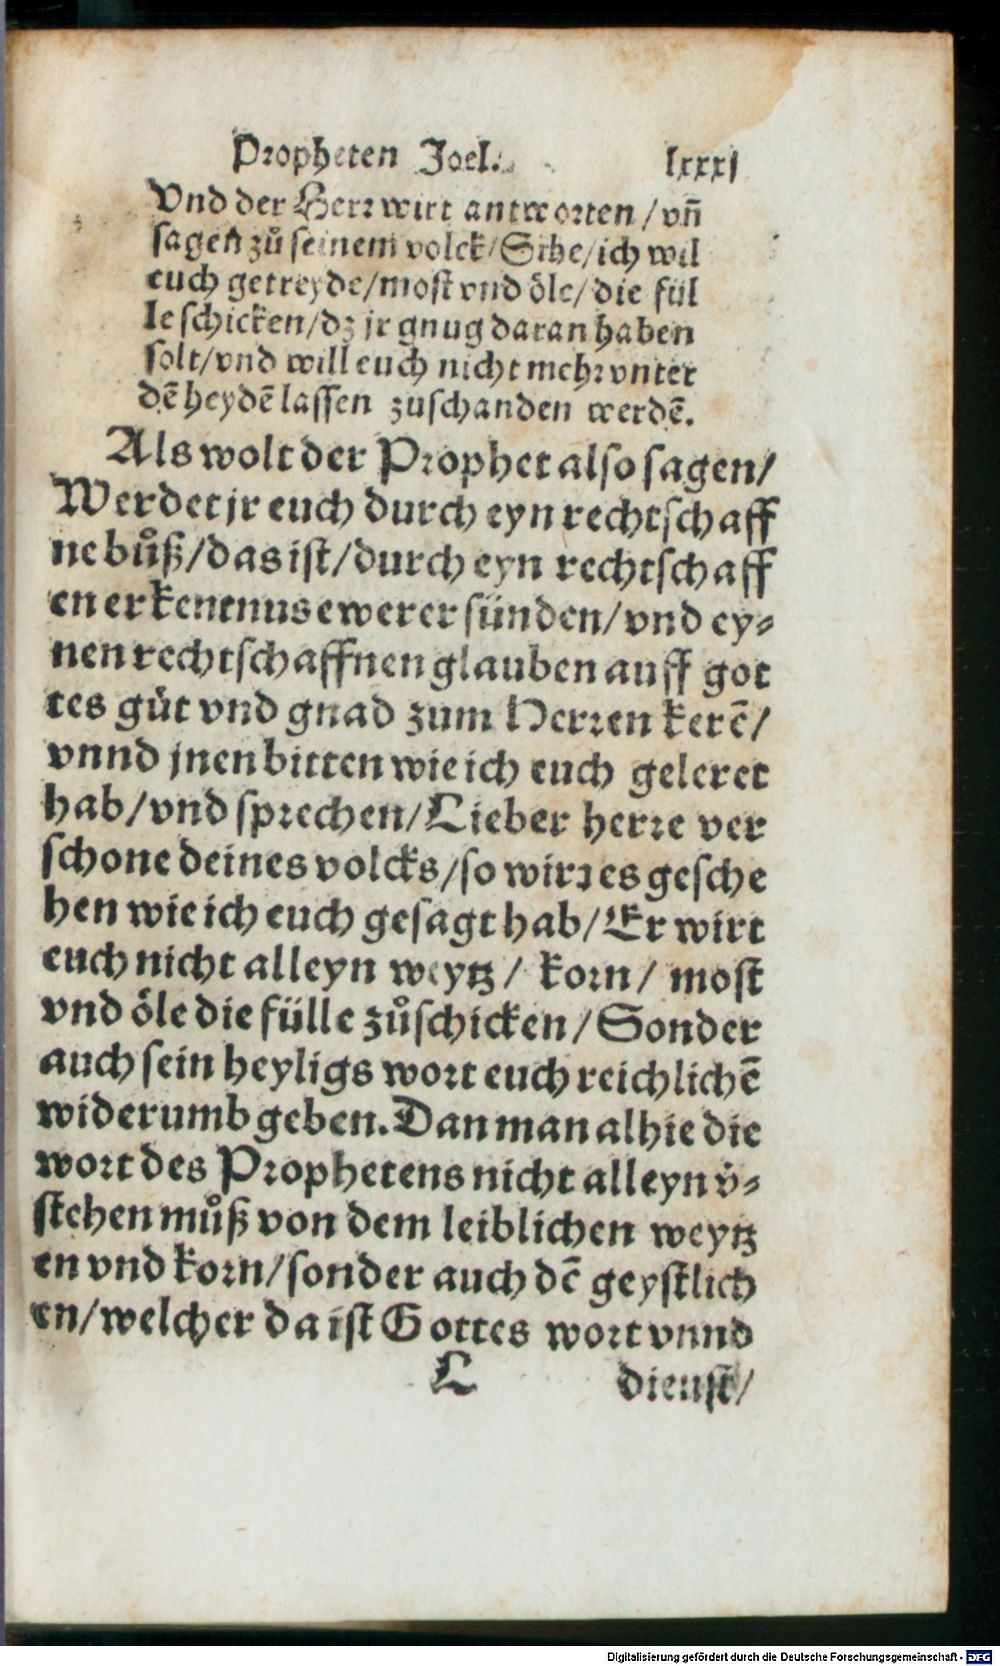 Propheten Joel. lxxxj
Vnd der Herr wirt antworten / vñ
sagen zů seinem volck / Sihe / ich wil
euch getreyde / most vnd öle / die fül
le schicken / dz jr gnug daran haben
solt / vnd will euch nicht mehr vnter
dē heydē lassen zuschanden werdē.
Als wolt der Prophet also sagen /
Werdet jr euch durch eyn rechtschaff
ne bůß / das ist / durch eyn rechtschaff
en erkentnus ewerer sünden / vnd ey⸗
nen rechtschaffnen glauben auff got
tes güt vnd gnad zum Herren kerē /
vnnd jnen bitten wie ich euch geleret
hab / vnd sprechen / Lieber herre ver
schone deines volcks / so wirt es gesche
hen wie ich euch gesagt hab / Er wirt
euch nicht alleyn weytz / korn / most
vnd öle die fülle zůschicken / Sonder
auch sein heyligs wort euch reichlichē
widerumb geben. Dan man alhie die
wort des Prophetens nicht alleyn v̈⸗
stehen můß von dem leiblichen weytz
en vnd korn / sonder auch dē geystlich
en / welcher da ist Gottes wort vnnd
L dienst /
Digitalisierung gefördert durch die Deutsche Forschungsgemeinschaft - DFG